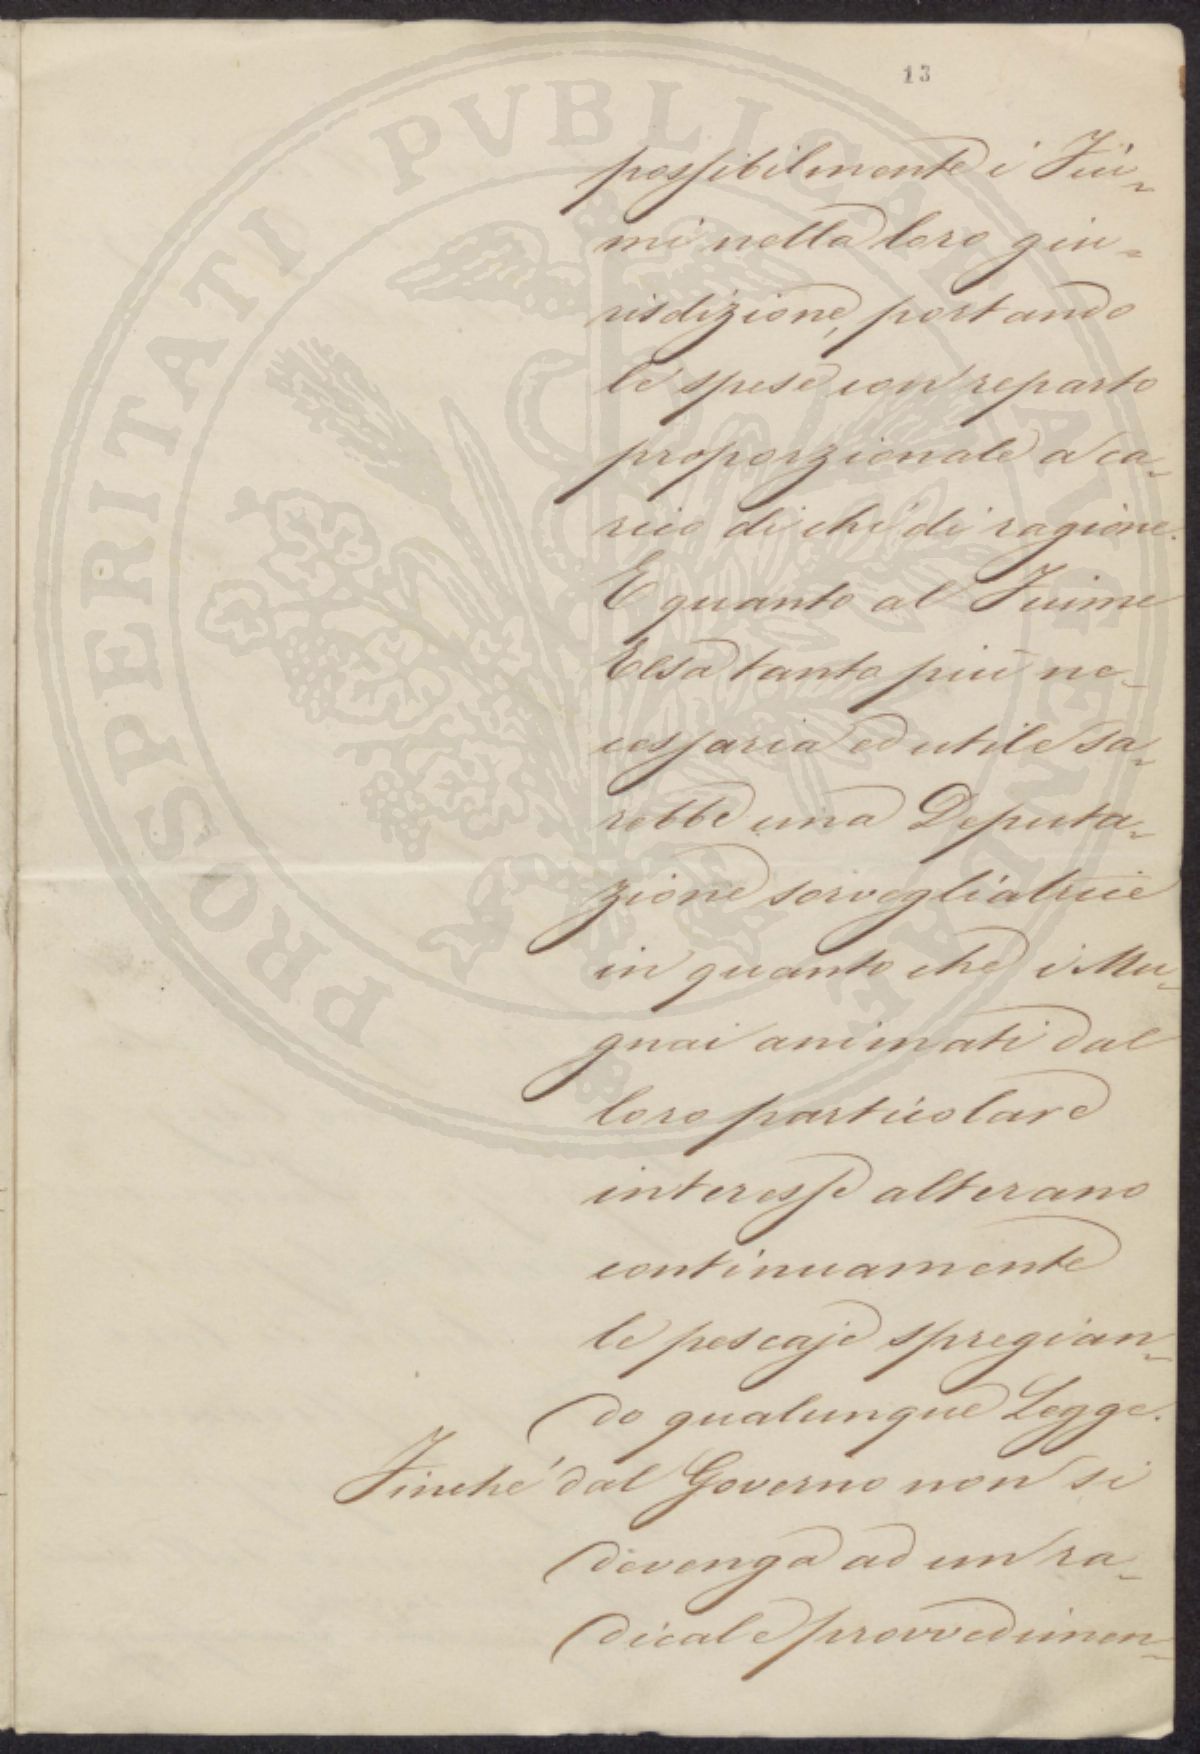 13
possibilmente i Fiu-
mi nella loro giu-
risdizione, portando
le spese con reparto
proporzionale a ca-
rico di chi di ragione.
E quanto al Fiume
Elsa tanto più ne-
cessaria ed utile sa-
rebbe una Deputa-
zione sorvegliatrice
in quanto che i Mu-
gnai animati dal
loro particolare
interesse alterano
continuamente
le pescaje spregian-
do qualunque Legge.
Finché dal Governo non si
divenga ad un ra-
dicale provvedimen-
PROSPERITATI PVBLICAE AVGENDAE